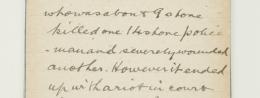 who was about 9 stone
killed one 14 stone police
-man and severely wounded
another. However it ended
up with a riot in court